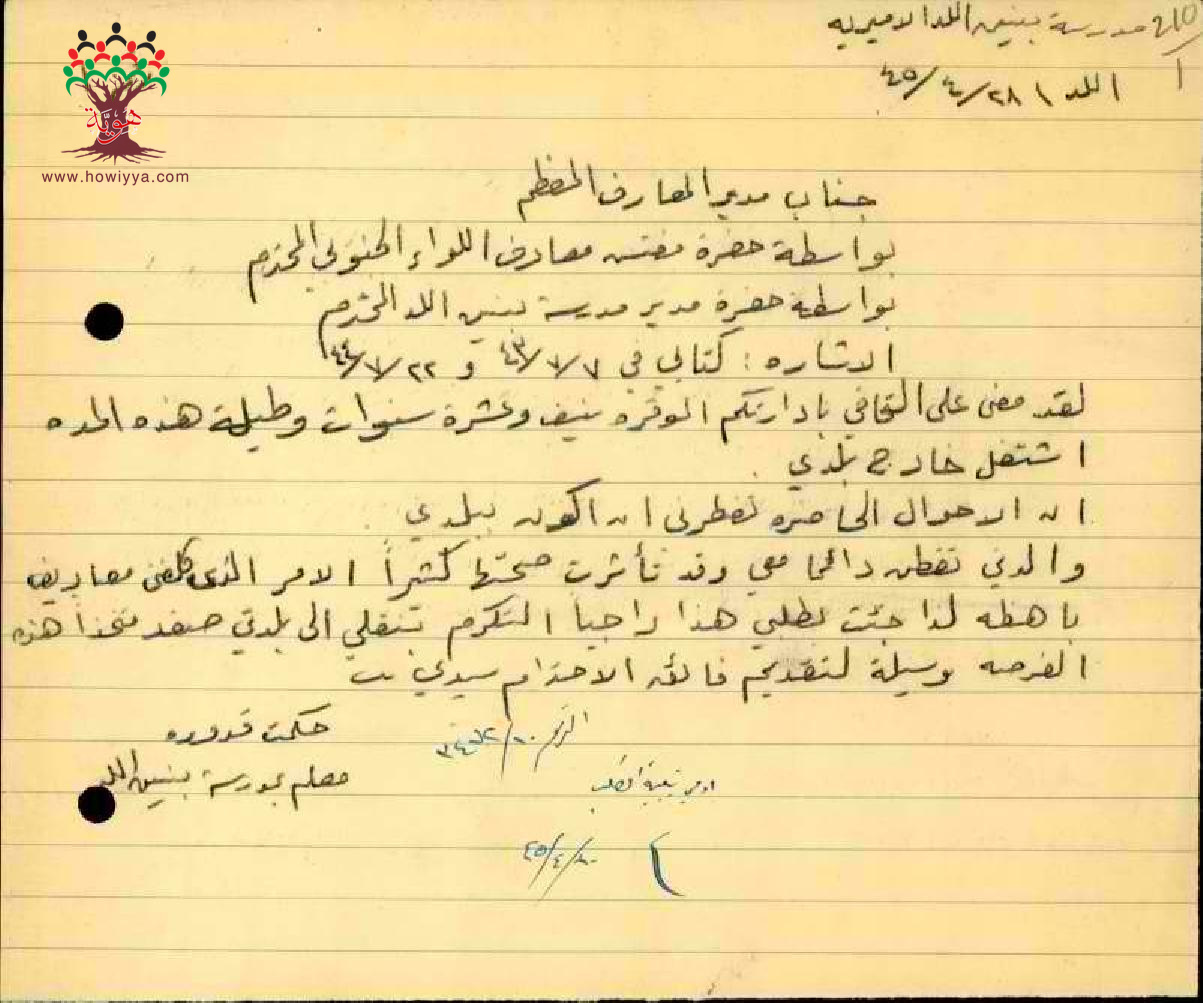 مدرسة بنين اللد الاميريه
اللد \ ٢٨/٤/٤٥
هوية
www.howiyya.com
جناب مدير المعارف المعظم
بواسطة حضرة مفتش معارف اللواء الجنوبي المحترم
بواسطة حضرة مدير مدرسة بنين اللد المحترم
الاشاره : كتابي في ٧/٧/٤٣ و ٢٢/٧/٤٤
لقد مضى على التحاقي بادارتكم الموقره نيف وعشرة سنوات وطيلة هذه المده
اشتغل خارج بلدي .
ان الاحوال الحاضره تضطرني ان اكون ببلدي .
والدتي تقطن دائما معي وقد تأثرت صحتها كثيراً الامر الذي كلفني مصاريف
باهظه لذا جئت بطلبي هذا راجياً التكرم بنقلي الى بلدتي صفد متخذاً هذه
الفرصه وسيلة لتقديم فائق الاحترام سيدي
حكمت قدوره
معلم بمدرسة بنين اللد
الرقم
اوصي بتلبية الطلب
٣٠/٤/٤٥